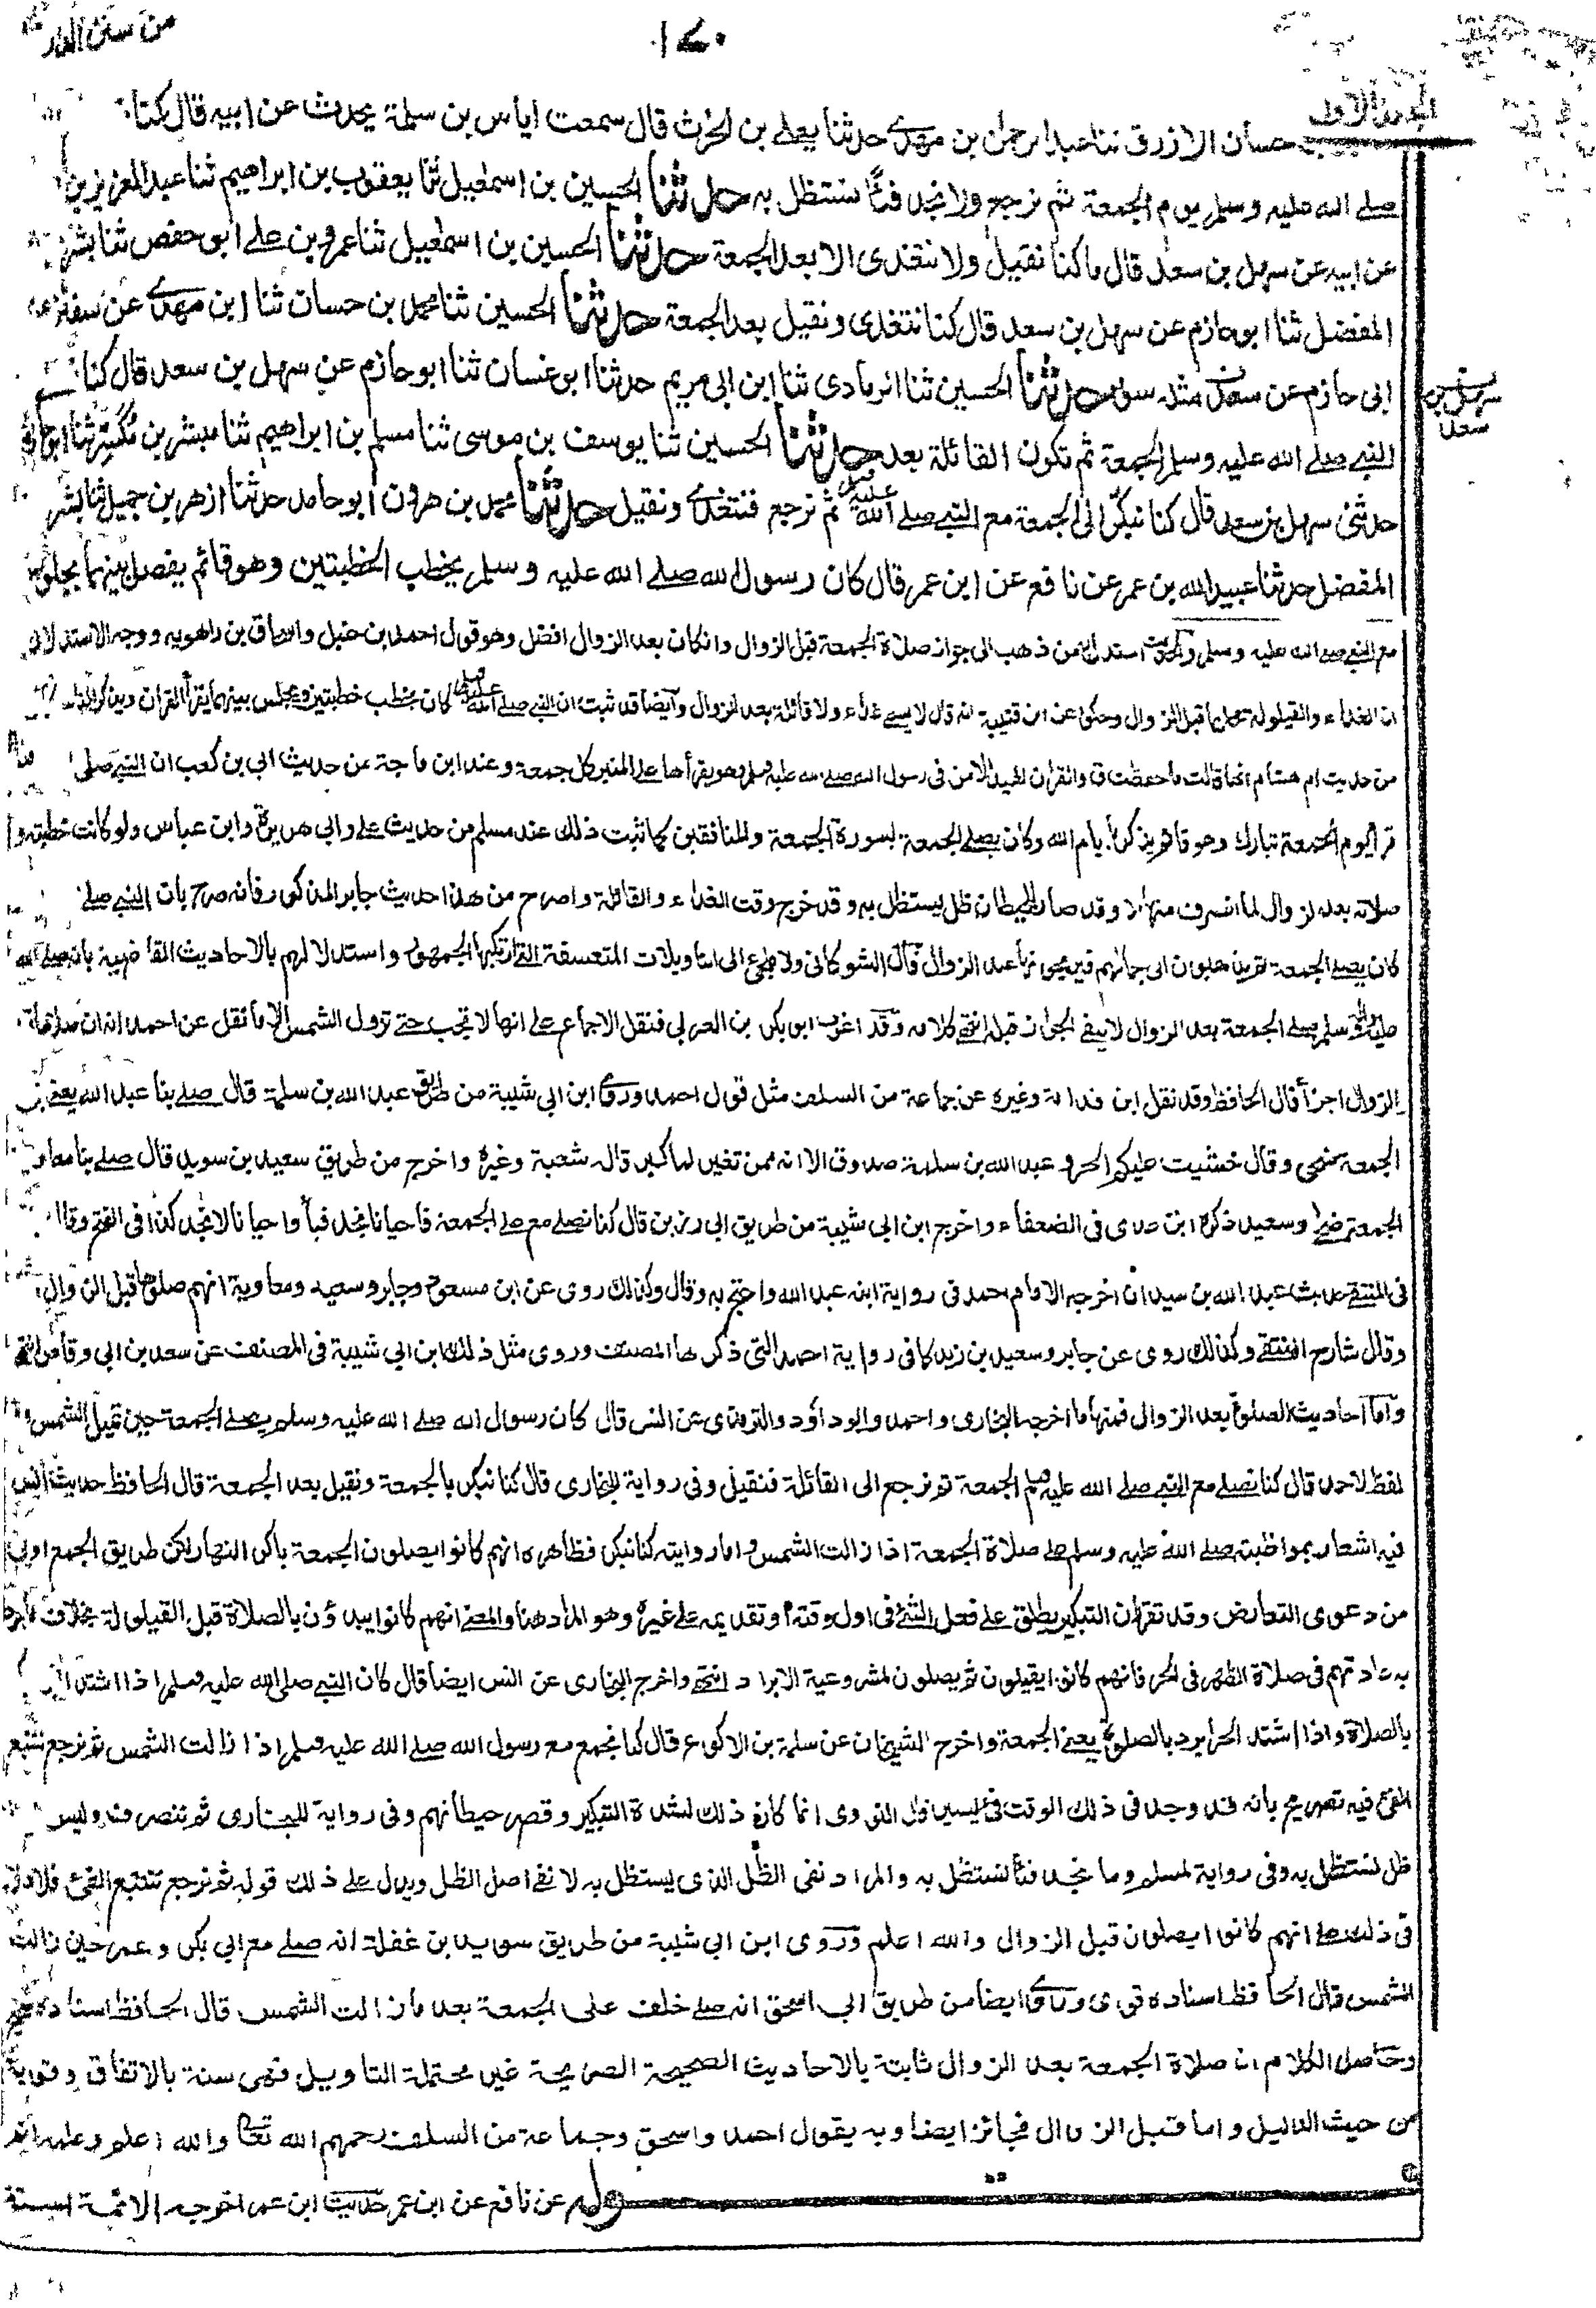 من سنن الدار
١٧٠
الجزء الأول
حسان الازرق ثنا عبد الرحمن بن مهدي حدثنا يعلى بن الحرث قال سمعت اياس بن سلمة يحدث عن ابيه قال كنا
صلى الله عليه وسلم يوم الجمعة ثم نرجع ولا نجد فيأ نستظل به حدثنا الحسين بن اسمعيل ثنا يعقوب بن ابراهيم ثنا عبد العزيز بن
عن ابيه عن سهل بن سعد قال ما كنا نقيل ولا نتغدى الا بعد الجمعة حدثنا الحسين بن اسمعيل ثنا عمرو بن على ابو حفص ثنا بشر
المفضل ثنا ابو حازم عن سهل بن سعد قال كنا نتغدى ونقيل بعد الجمعة حدثنا الحسين ثنا محمد بن حسان ثنا ابن مهدي عن سفين
ابى حازم عن سهل مثله سواء حدثنا الحسين ثنا الرمادى ثنا ابن ابى مريم حدثنا ابو غسان ثنا ابو حازم عن سهل بن سعد قال كنا
سهل بن
سعد
النبي صلى الله عليه وسلم الجمعة ثم تكون القائلة بعد حدثنا الحسين ثنا يوسف بن موسى ثنا مسلم بن ابراهيم ثنا مبشر بن مكسر ثنا ابو حازم
حدثنى سهل بن سعد قال كنا نبكر الى الجمعة مع النبي صلى الله عليه وسلم ثم نرجع فنتغدى ونقيل حدثنا محمد بن هرون ابو حامد حدثنا ازهر بن جميل ثنا بشر
المفضل حدثنا عبيد الله بن عمر عن نافع عن ابن عمر قال كان رسول الله صلى الله عليه وسلم يخطب الخطبتين وهو قائم يفصل بينهما بجلوس
مع النبي صلى الله عليه وسلم والحديث استدل به من ذهب الى جواز صلاة الجمعة قبل الزوال وان كان بعد الزوال افضل وهو قول احمد بن حنبل واسحاق بن راهويه ووجه الاستدلال
ان الغداء والقيلولة محلهما قبل الزوال وحكى عن ابن قتيبة انه قال لا يسمى غداء ولا قائلة بعد الزوال وآيضا قد ثبت ان النبي صلى الله عليه وسلم كان يخطب خطبتين ويجلس بينهما يقرأ القران ويذكر الناس
من حديث ام هشام انها قالت ما حفظت ق والقران المجيد الا من فى رسول الله صلى الله عليه وسلم وهو يقرأها على المنبر كل جمعة وعند ابن ماجة من حديث ابى بن كعب ان النبي صلى
قرأ يوم الجمعة تبارك وهو قائم يذكر بأيام الله وكان يصلى الجمعة بسورة الجمعة والمنافقين كما ثبت ذلك عند مسلم من حديث على وابى هريرة وابن عباس ولو كانت خطبته و
صلاته بعد الزوال لما انصرف منها الا وقد صار للحيطان ظل يستظل به وقد خرج وقت الغداء والقائلة واصرح من هذا حديث جابر المذكور فانه صرح بان النبي صلى
كان يصلى الجمعة ثم يذهبون الى جمالهم فيريحونها عند الزوال قال الشوكانى ولا ملجئ الى التأويلات المتعسفة التى ارتكبها الجمهور واستدلالهم بالاحاديث القاضية بانه صلى الله
عليه وسلم صلى الجمعة بعد الزوال لا ينفى الجواز قبله انتهى كلامه وقد اغرب ابو بكر بن العربى فنقل الاجماع على انها لا تجب حتى تزول الشمس الا ما نقل عن احمد انه ان صلاها قبل
الزوال اجزأ قال الحافظ وقد نقل ابن قدامة وغيره عن جماعة من السلف مثل قول احمد وروى ابن ابى شيبة من طريق عبد الله بن سلمة قال صلى بنا عبد الله يعنى
الجمعة ضحى وقال خشيت عليكم الحر وعبد الله بن سلمة صدوق الا انه ممن تغير لما كبر قاله شعبة وغيره واخرج من طريق سعيد بن سويد قال صلى بنا معاوية
الجمعة ضحى وسعيد ذكره ابن عدى فى الضعفاء واخرج ابن ابى شيبة من طريق ابى رزين قال كنا نصلى مع على الجمعة فاحيانا نجد فيأ واحيانا لا نجد كذا فى الفتح وقال
فى المنتقى حديث عبد الله بن سيدان اخرجه الامام احمد فى رواية ابنه عبد الله واحتج به وقال وكذلك روى عن ابن مسعود وجابر وسعيد ومعاوية انهم صلوها قبل الزوال
وقال شارح المنتقى وكذلك روى عن جابر وسعيد بن زيد كما فى رواية احمد التى ذكرها المصنف وروى مثل ذلك ابن ابى شيبة فى المصنف عن سعد بن ابى وقاص انتهى
وآما احاديث الصلوة بعد الزوال فمنها ما اخرجه البخارى واحمد وابو داؤد والترمذى عن انس قال كان رسول الله صلى الله عليه وسلم يصلى الجمعة حين تميل الشمس و
لفظ لاحمد قال كنا نصلى مع النبي صلى الله عليه وسلم الجمعة ثم نرجع الى القائلة فنقيل وفى رواية للبخارى قال كنا نبكر بالجمعة ونقيل بعد الجمعة قال الحافظ حديث انس
فيه اشعار بمواظبته صلى الله عليه وسلم على صلاة الجمعة اذا زالت الشمس واما روايته كنا نبكر فظاهره انهم كانوا يصلون الجمعة باكر النهار لكن طريق الجمع اولى
من دعوى التعارض وقد تقرر ان التبكير يطلق على فعل الشئ فى اول وقته او تقديمه على غيره وهو المراد هنا والمعنى انهم كانوا يبدؤن بالصلاة قبل القيلولة بخلاف ما جرت
به عادتهم فى صلاة الظهر فى الحر فانهم كانوا يقيلون ثم يصلون لمشروعية الابراد انتهى واخرج البخارى عن انس ايضا قال كان النبي صلى الله عليه وسلم اذا اشتد البرد
بالصلاة واذا اشتد الحر ابرد بالصلوة يعنى الجمعة واخرج الشيخان عن سلمة بن الاكوع قال كنا نجمع مع رسول الله صلى الله عليه وسلم اذا زالت الشمس ثم نرجع نتتبع
الفئ فيه تصريح بانه قد وجد فى ذلك الوقت فئ يسير قال النووى انما كان ذلك لشدة التبكير وقصر حيطانهم وفى رواية للبخارى ثم ننصرف وليس
ظل نستظل به وفى رواية لمسلم وما نجد فيأ نستظل به والمراد نفى الظل الذى يستظل به لا نفى اصل الظل ويدل على ذلك قوله ثم نرجع نتتبع الفئ فلا دلالة
فى ذلك على انهم كانوا يصلون قبل الزوال والله اعلم وروى ابن ابى شيبة من طريق سويد بن غفلة انه صلى مع ابى بكر وعمر حين زالت
الشمس قال الحافظ اسناده قوى وروى ايضا من طريق ابى اسحق انه صلى خلف على الجمعة بعد ما زالت الشمس قال الحافظ اسناده صحيح
وحاصل الكلام ان صلاة الجمعة بعد الزوال ثابتة بالاحاديث الصحيحة الصريحة غير محتملة التاويل فهى سنة بالاتفاق وقوية
من حيث الدليل واما قبل الزوال فجائز ايضا وبه يقول احمد واسحق وجماعة من السلف رحمهم الله تعالى والله اعلم وعلمه اتم
قوله عن نافع عن ابن عمر حديث ابن عمر اخرجه الائمة الستة